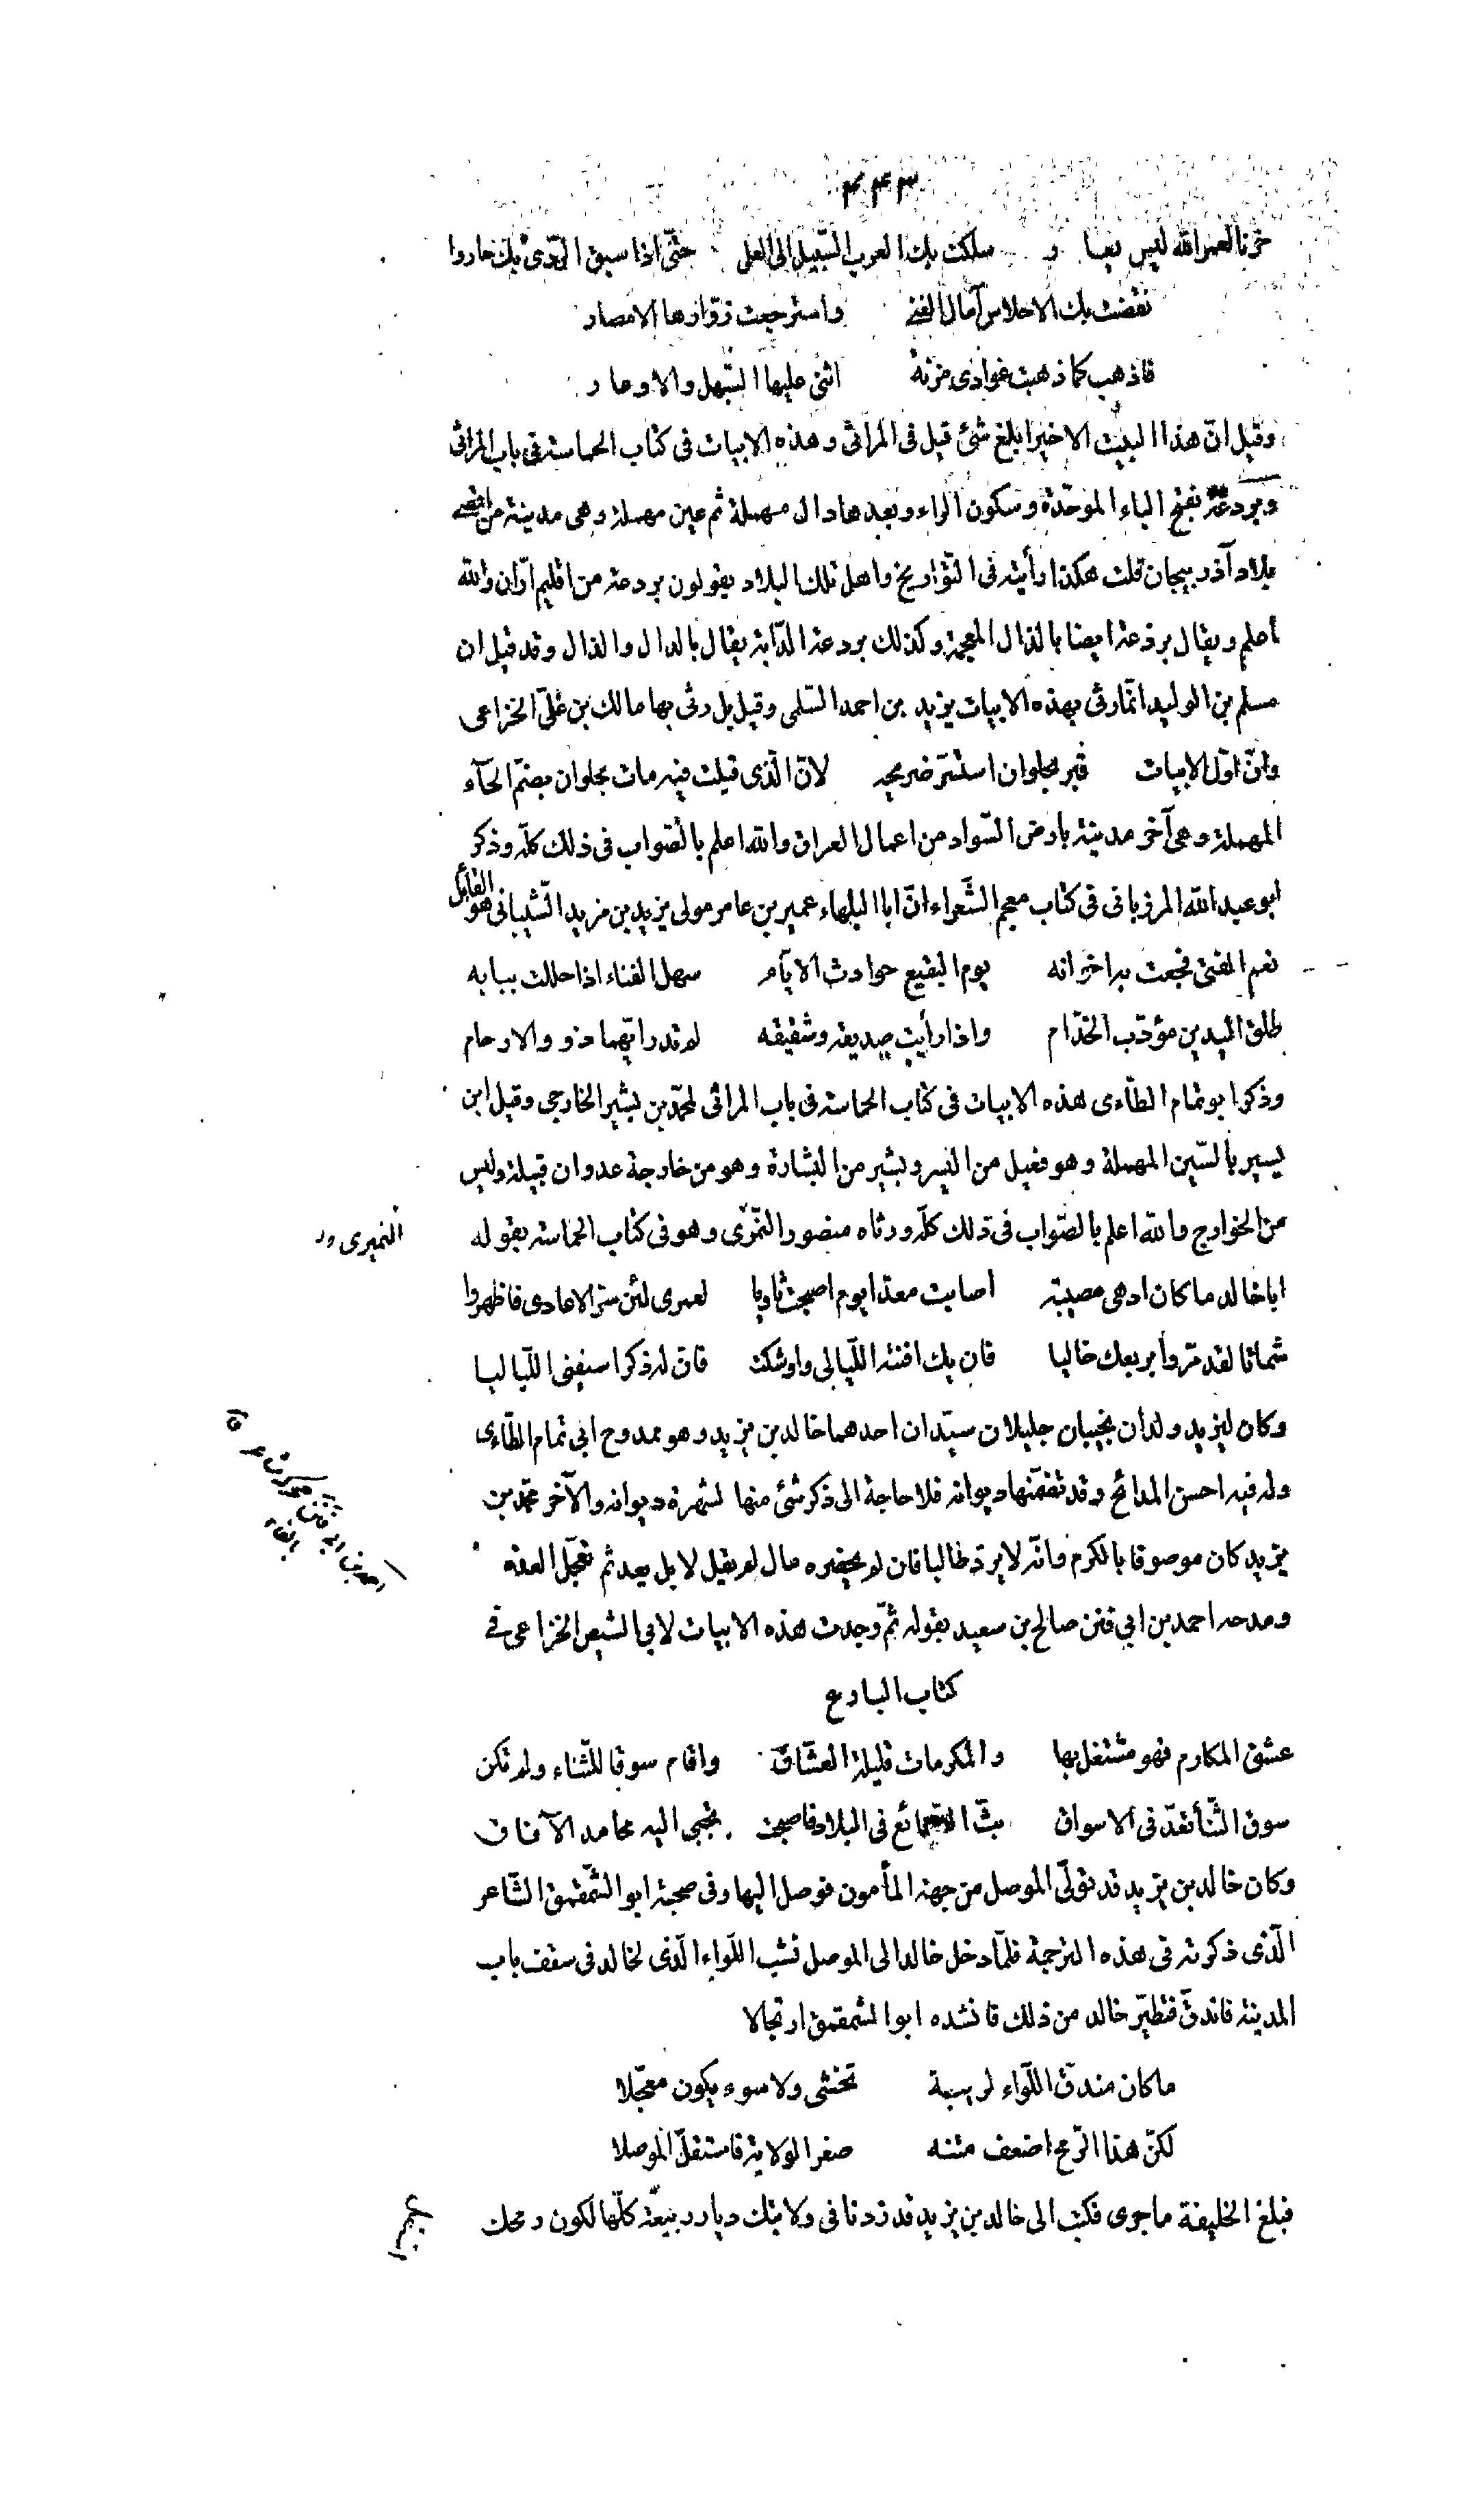 ٣٤٣
حزنا لعمر الله ليس يعار سلكت بك العرب السّبيل الى العلى حتّى اذا سبق الرّدى بك حاروا
نفضت بك الاحلاس آمال الغنى واسترجعت زوّارها الامصار
فاذهب كما ذهبت غوادى مزنة اثنى عليها السّهل والاوعار
وقيل انّ هذا البيت الاخير ابلغ شئ قيل فى المراثى وهذه الابيات فى كتاب الحماسة فى باب المراثى
وبردعة بفتح الباء الموحّدة وسكون الراء وبعدها دال مهملة ثم عين مهملة وهى مدينة من اقصى
بلاد آذربيجان قلت هكذا رأيته فى التّواريخ واهل تلك البلاد يقولون بردعة من اقليم ارّان والله
اعلم ويقال برذعة ايضا بالذال المعجمة وكذلك بردعة الدّابة يقال بالدال والذال وقد قيل ان
مسلم بن الوليد انّما رثى بهذه الابيات يزيد بن احمد السّلمى وقيل بل رثى بها مالك بن علىّ الخزاعى
وانّ اوّل الابيات قبر بحلوان استسرّ ضريحه لانّ الّذى قيلت فيه مات بحلوان بضمّ الحآء
المهملة وهى آخر مدينة بارض السّواد من اعمال العراق والله اعلم بالصّواب فى ذلك كلّه وذكر
ابو عبد الله المرزبانى فى كتاب معجم الشّعراء انّ ابا البلهاء عمير بن عامر مولى يزيد بن مزيد الشّيبانى هو القائل
نعم الفتى فجعت به اخوانه يوم البقيع حوادث الايّام سهل الفناء اذا حللت ببابه
طلق اليدين مؤدّب الخدّام واذا رأيت صديقه وشقيقه لم تدر ايّهما ذوو الارحام
وذكر ابو تمام الطّاءى هذه الابيات فى كتاب الحماسة فى باب المراثى لمحمّد بن بشير الخارجى وقيل ابن
يسير بالسّين المهملة وهو فعيل من اليسر وبشير من البشارة وهو من خارجة عدوان قبيلة وليس
من الخوارج والله اعلم بالصّواب فى ذلك كلّه ورثاه منصور النّمرى وهو فى كتاب الحماسة بقوله
النميرى
ابا خالد ما كان ادهى مصيبة اصابت معدّا يوم اصبحت ثاويا لعمرى لئن سرّ الاعادى فاظهروا
شماتا لقد مرّوا بربعك خاليا فان يك افنته اللّيالى واوشكت فانّ له ذكرا سيفنى اللّياليا
وكان ليزيد ولدان نجيبان جليلان سيّدان احدهما خالد بن يزيد وهو ممدوح ابى تمام الطّاءى
وله فيه احسن المدائح وقد تضمّنها ديوانه فلا حاجة الى ذكر شئ منها لشهرة ديوانه والآخر محمّد بن
يزيد كان موصوفا بالكرم وانّه لا يردّ طالبا فان لم يحضره مال لم يقل لا بل يعد ثم تعجّل العدة
ومدحه احمد بن ابى فنن صالح بن سعيد بقوله ثمّ وجدت هذه الابيات لابى الشيص الخزاعى فى
كتاب البارع
عشق المكارم فهو مشتغل بها والمكرمات قليلة العشّاق واقام سوقا للثّناء ولم تكن
سوق الثّنا تعدّ فى الاسواق بثّ الصّنائع فى البلاد فاصبحت تجبى اليه محامد الآفاق
وكان خالد بن يزيد قد تولّى الموصل من جهة المأمون فوصل اليها وفى صحبته ابو الشّمقمق الشّاعر
الّذى ذكرته فى هذه الترجمة فلمّا دخل خالد الى الموصل نشب اللّواء الّذى لخالد فى سقف باب
المدينة فاندقّ فتطيّر خالد من ذلك فانشده ابو الشمقمق ارتجالا
ما كان مندقّ اللّواء لريبة تخشى ولا سوء يكون معجّلا
لكنّ هذا الرّمح اضعف متنه صغر الولاية فاستقلّ الموصلا
فبلغ الخليفة ما جرى فكتب الى خالد بن يزيد قد زدنا فى ولايتك ديار ربيعة كلّها لكون رمحك